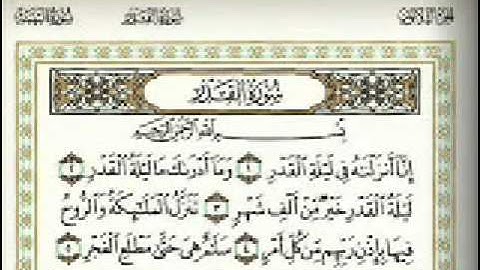 سُورَةُ البَيِّنَة سُورَةُ القَدْرِ الجُزْءُ الثَّلَاثُونَ
سُورَةُ القَدْرِ
بِسْمِ اللَّهِ الرَّحْمَٰنِ الرَّحِيمِ
إِنَّا أَنزَلْنَٰهُ فِي لَيْلَةِ الْقَدْرِ ١ وَمَا أَدْرَىٰكَ مَا لَيْلَةُ الْقَدْرِ ٢
لَيْلَةُ الْقَدْرِ خَيْرٌ مِّنْ أَلْفِ شَهْرٍ ٣ تَنَزَّلُ الْمَلَٰٓئِكَةُ وَالرُّوحُ
فِيهَا بِإِذْنِ رَبِّهِم مِّن كُلِّ أَمْرٍ ٤ سَلَٰمٌ هِيَ حَتَّىٰ مَطْلَعِ الْفَجْرِ ٥